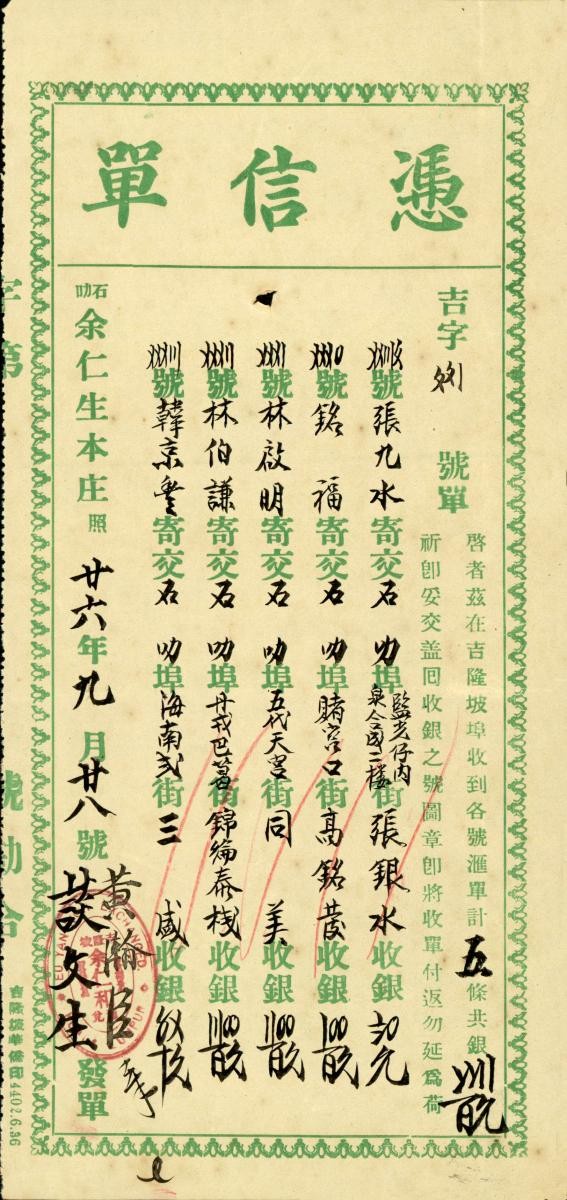 憑信單
吉字 號單
啓者茲在吉隆坡埠收到各號滙單計五條共銀
祈卽妥交盖回收銀之號圖章卽將收單付返勿延爲荷
號張九水寄交石叻埠監光仔內泉合成二樓街張銀水收銀
號銘福寄交石叻埠賭宮口街高銘茂收銀
號林啟明寄交石叻埠五代天宮街同美收銀
號林伯謙寄交石叻埠丹戎巴葛街錦綸泰棧收銀
號韓京豐寄交石叻埠海南弍街三盛收銀
石叻余仁生本庄照
廿六年九月廿八號
黃瀚臣
發單
字第
號勘合
吉隆坡華僑印 4402.6.36